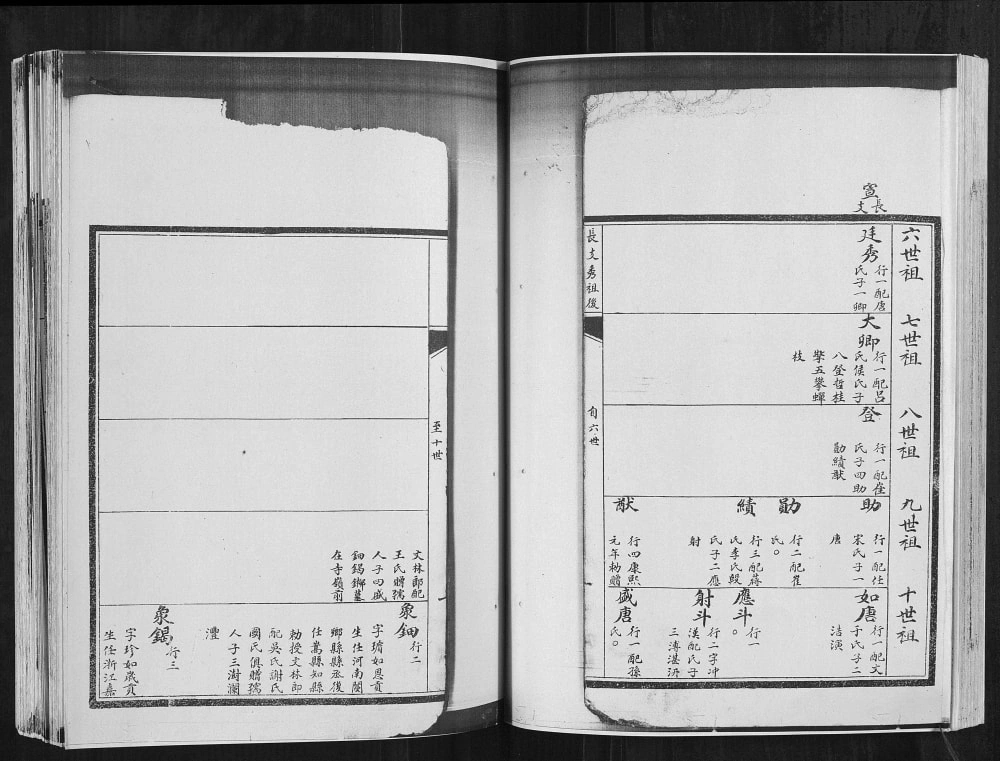 長
支
六世祖
廷秀
行一配唐
氏子一卿
七世祖
大卿
行一配呂
氏侯氏子
八登哲桂
擎五攀蟬
枝
八世祖
登
行一配崔
氏子四助
勛績猷
九世祖
助
行一配任
宋氏子一
唐
勛
行二配崔
氏。
績
行三配蔣
氏李氏段
氏子二應
射
猷
行四康熙
元年勅贈
十世祖
如唐
行一配文
于氏子二
潔演
應斗
行一
。
射斗
行二字冲
漢配氏子
三溥湛汧
盛唐
行一配孫
氏。
長支秀祖後
自六世
至十世
文林郎配
王氏贈孺
人子四盛
鈿鍚
在寺嶺前
象鈿
行二
字瑃如恩貢
生任河南閿
鄉縣縣丞後
任嵩縣知縣
勅授文林郎
配吳氏謝氏
國氏俱贈孺
人子三澍瀾
澧
象鍚
行三
字珍如歲貢
生任浙江嘉